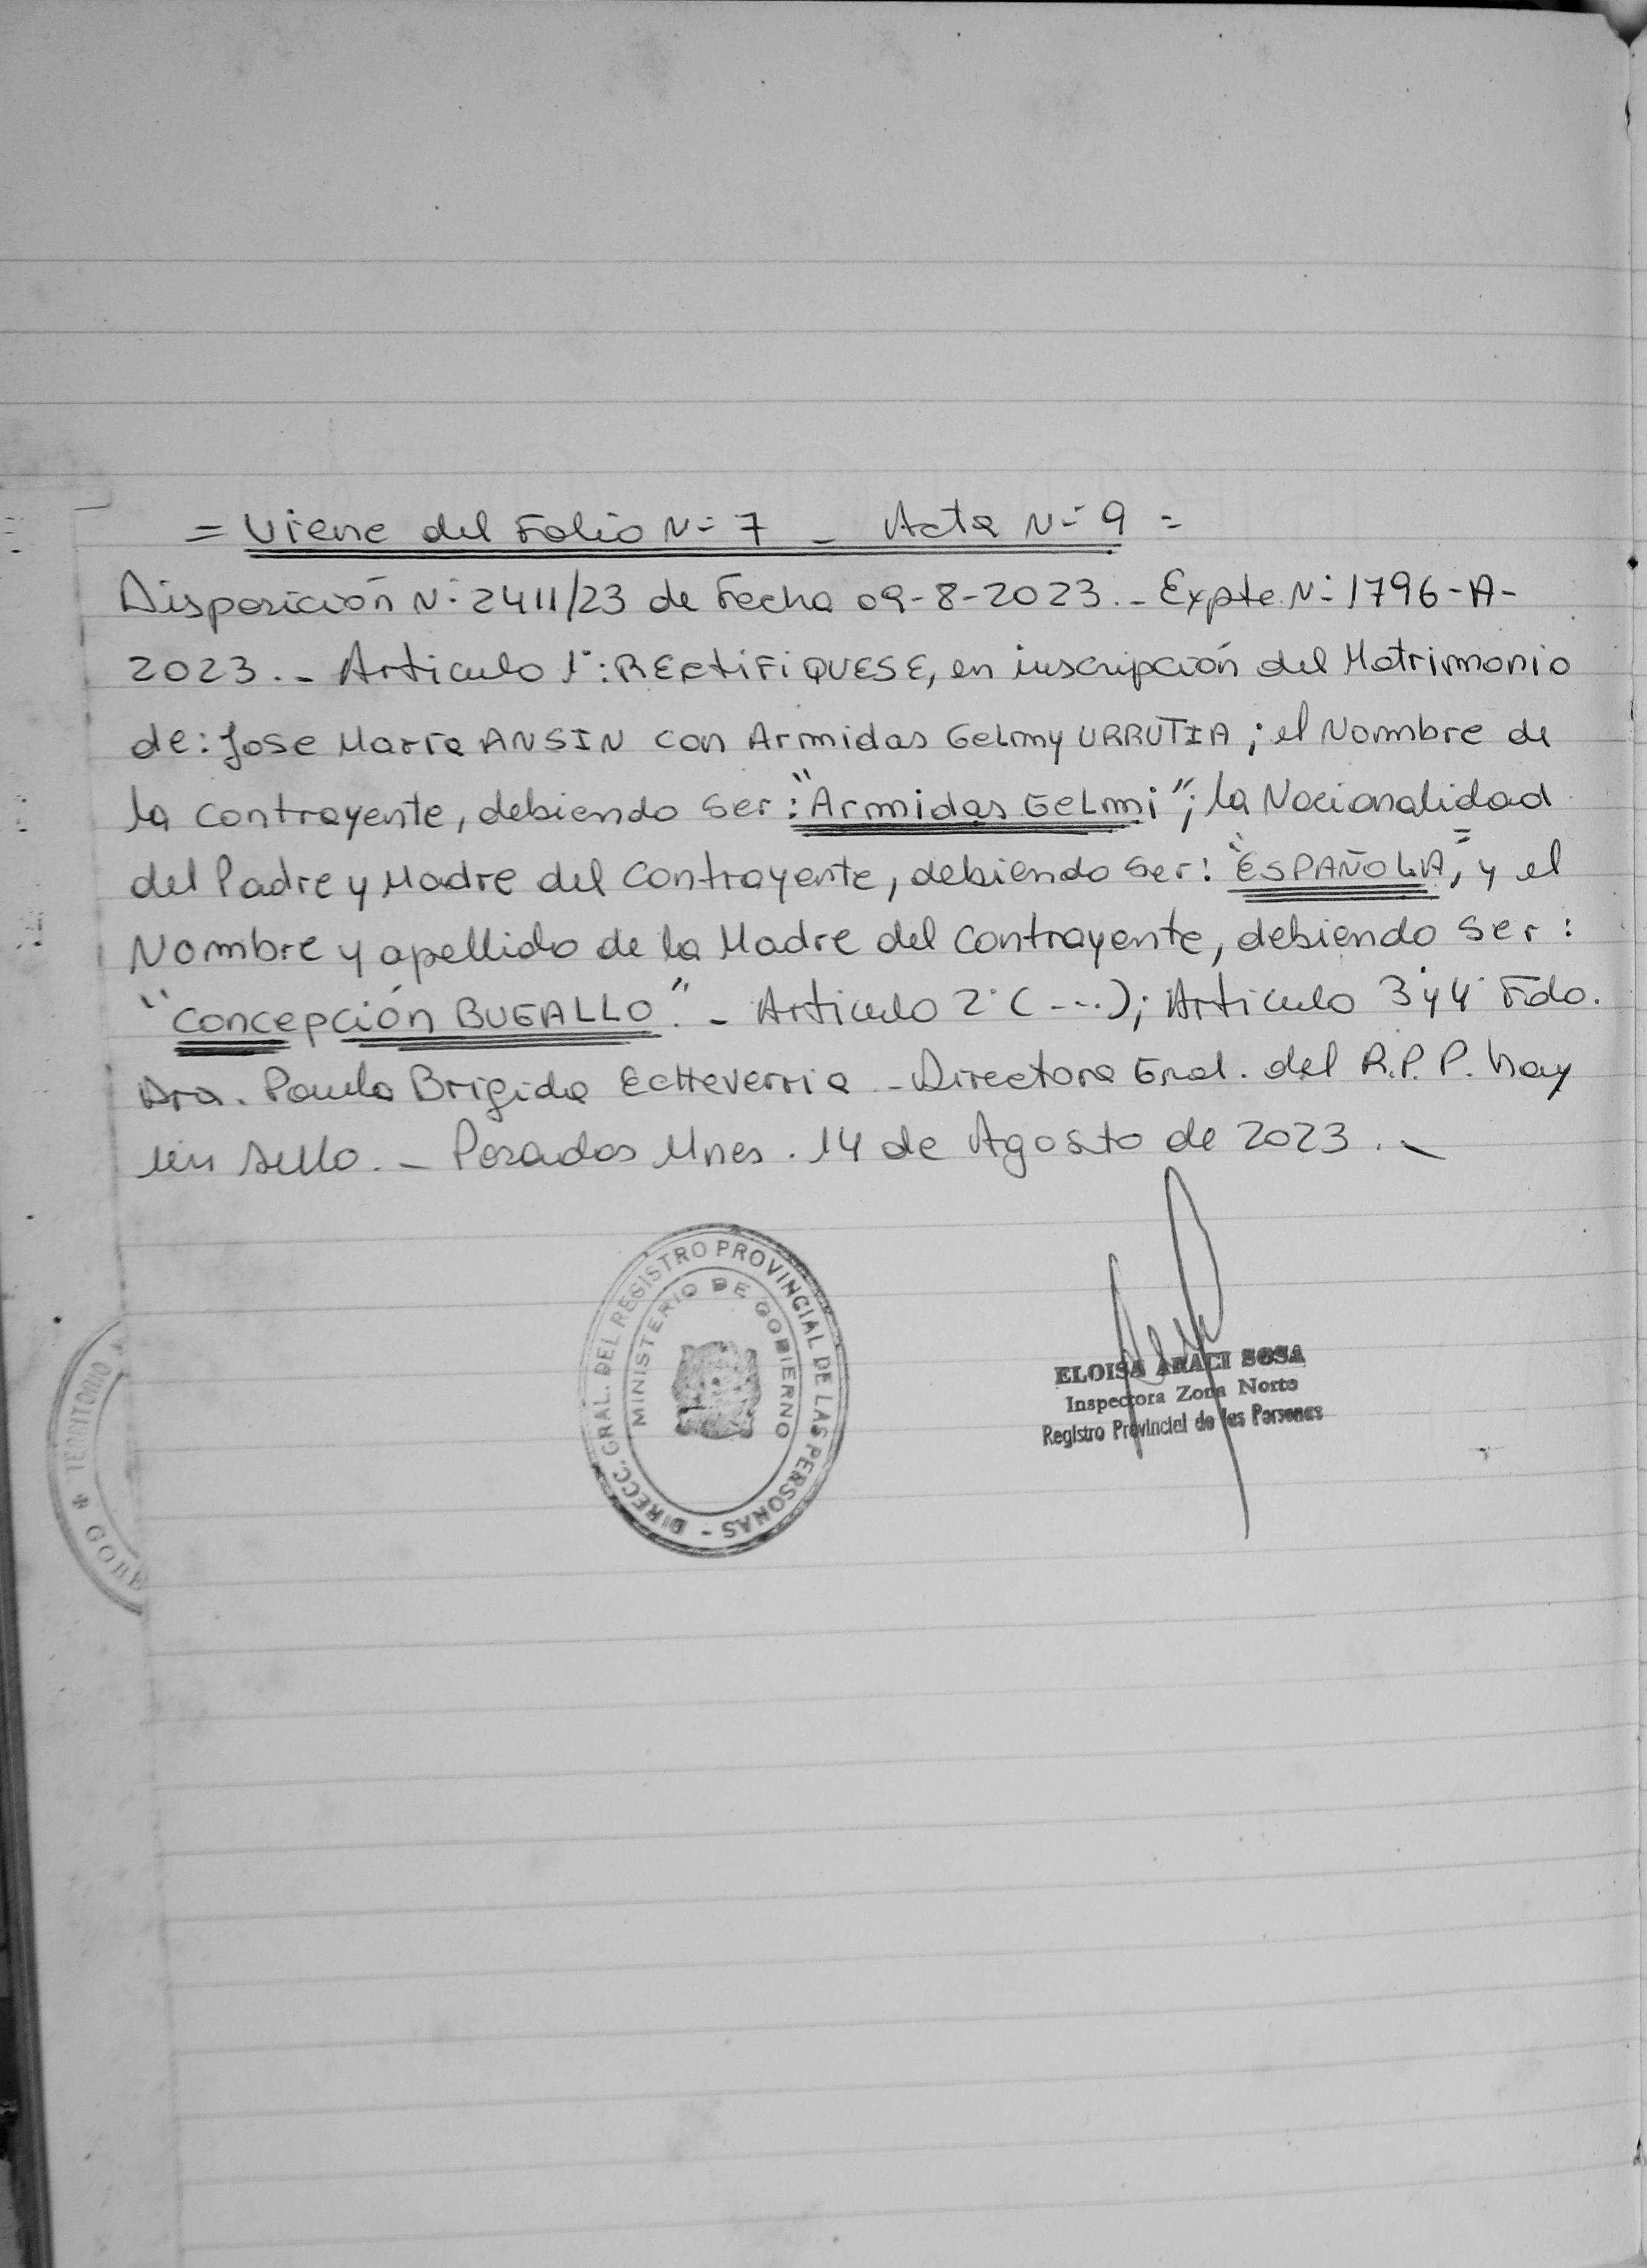 = Viene del Folio N° 7 - Acta N° 9 =
Disposición N° 2411/23 de Fecha 09-8-2023.- Expte. N° 1796-A-
2023.- Articulo 1°: RECTIFIQUESE, en inscripción del Matrimonio
de: Jose María ANSIN con Armidas Gelmy URRUTIA; el Nombre de
la contrayente, debiendo ser: "Armidas GeLmi"; la Nacionalidad
del Padre y Madre del contrayente, debiendo ser: "ESPAÑOLA", y el
Nombre y apellido de la Madre del contrayente, debiendo ser:
"Concepción BUGALLO". - Articulo 2° (---); Articulo 3° y 4° Fdo.
Dra. Paula Brigida Echeverria - Directora Gral. del R.P.P. hay
un sello. - Posadas Mnes. 14 de Agosto de 2023.-
DIRECC. GRAL. DEL REGISTRO PROVINCIAL DE LAS PERSONAS -
MINISTERIO DE GOBIERNO
ELOISA ARACI SOSA
Inspectora Zona Norte
Registro Provincial de las Personas
TERRITORIO
GOBE